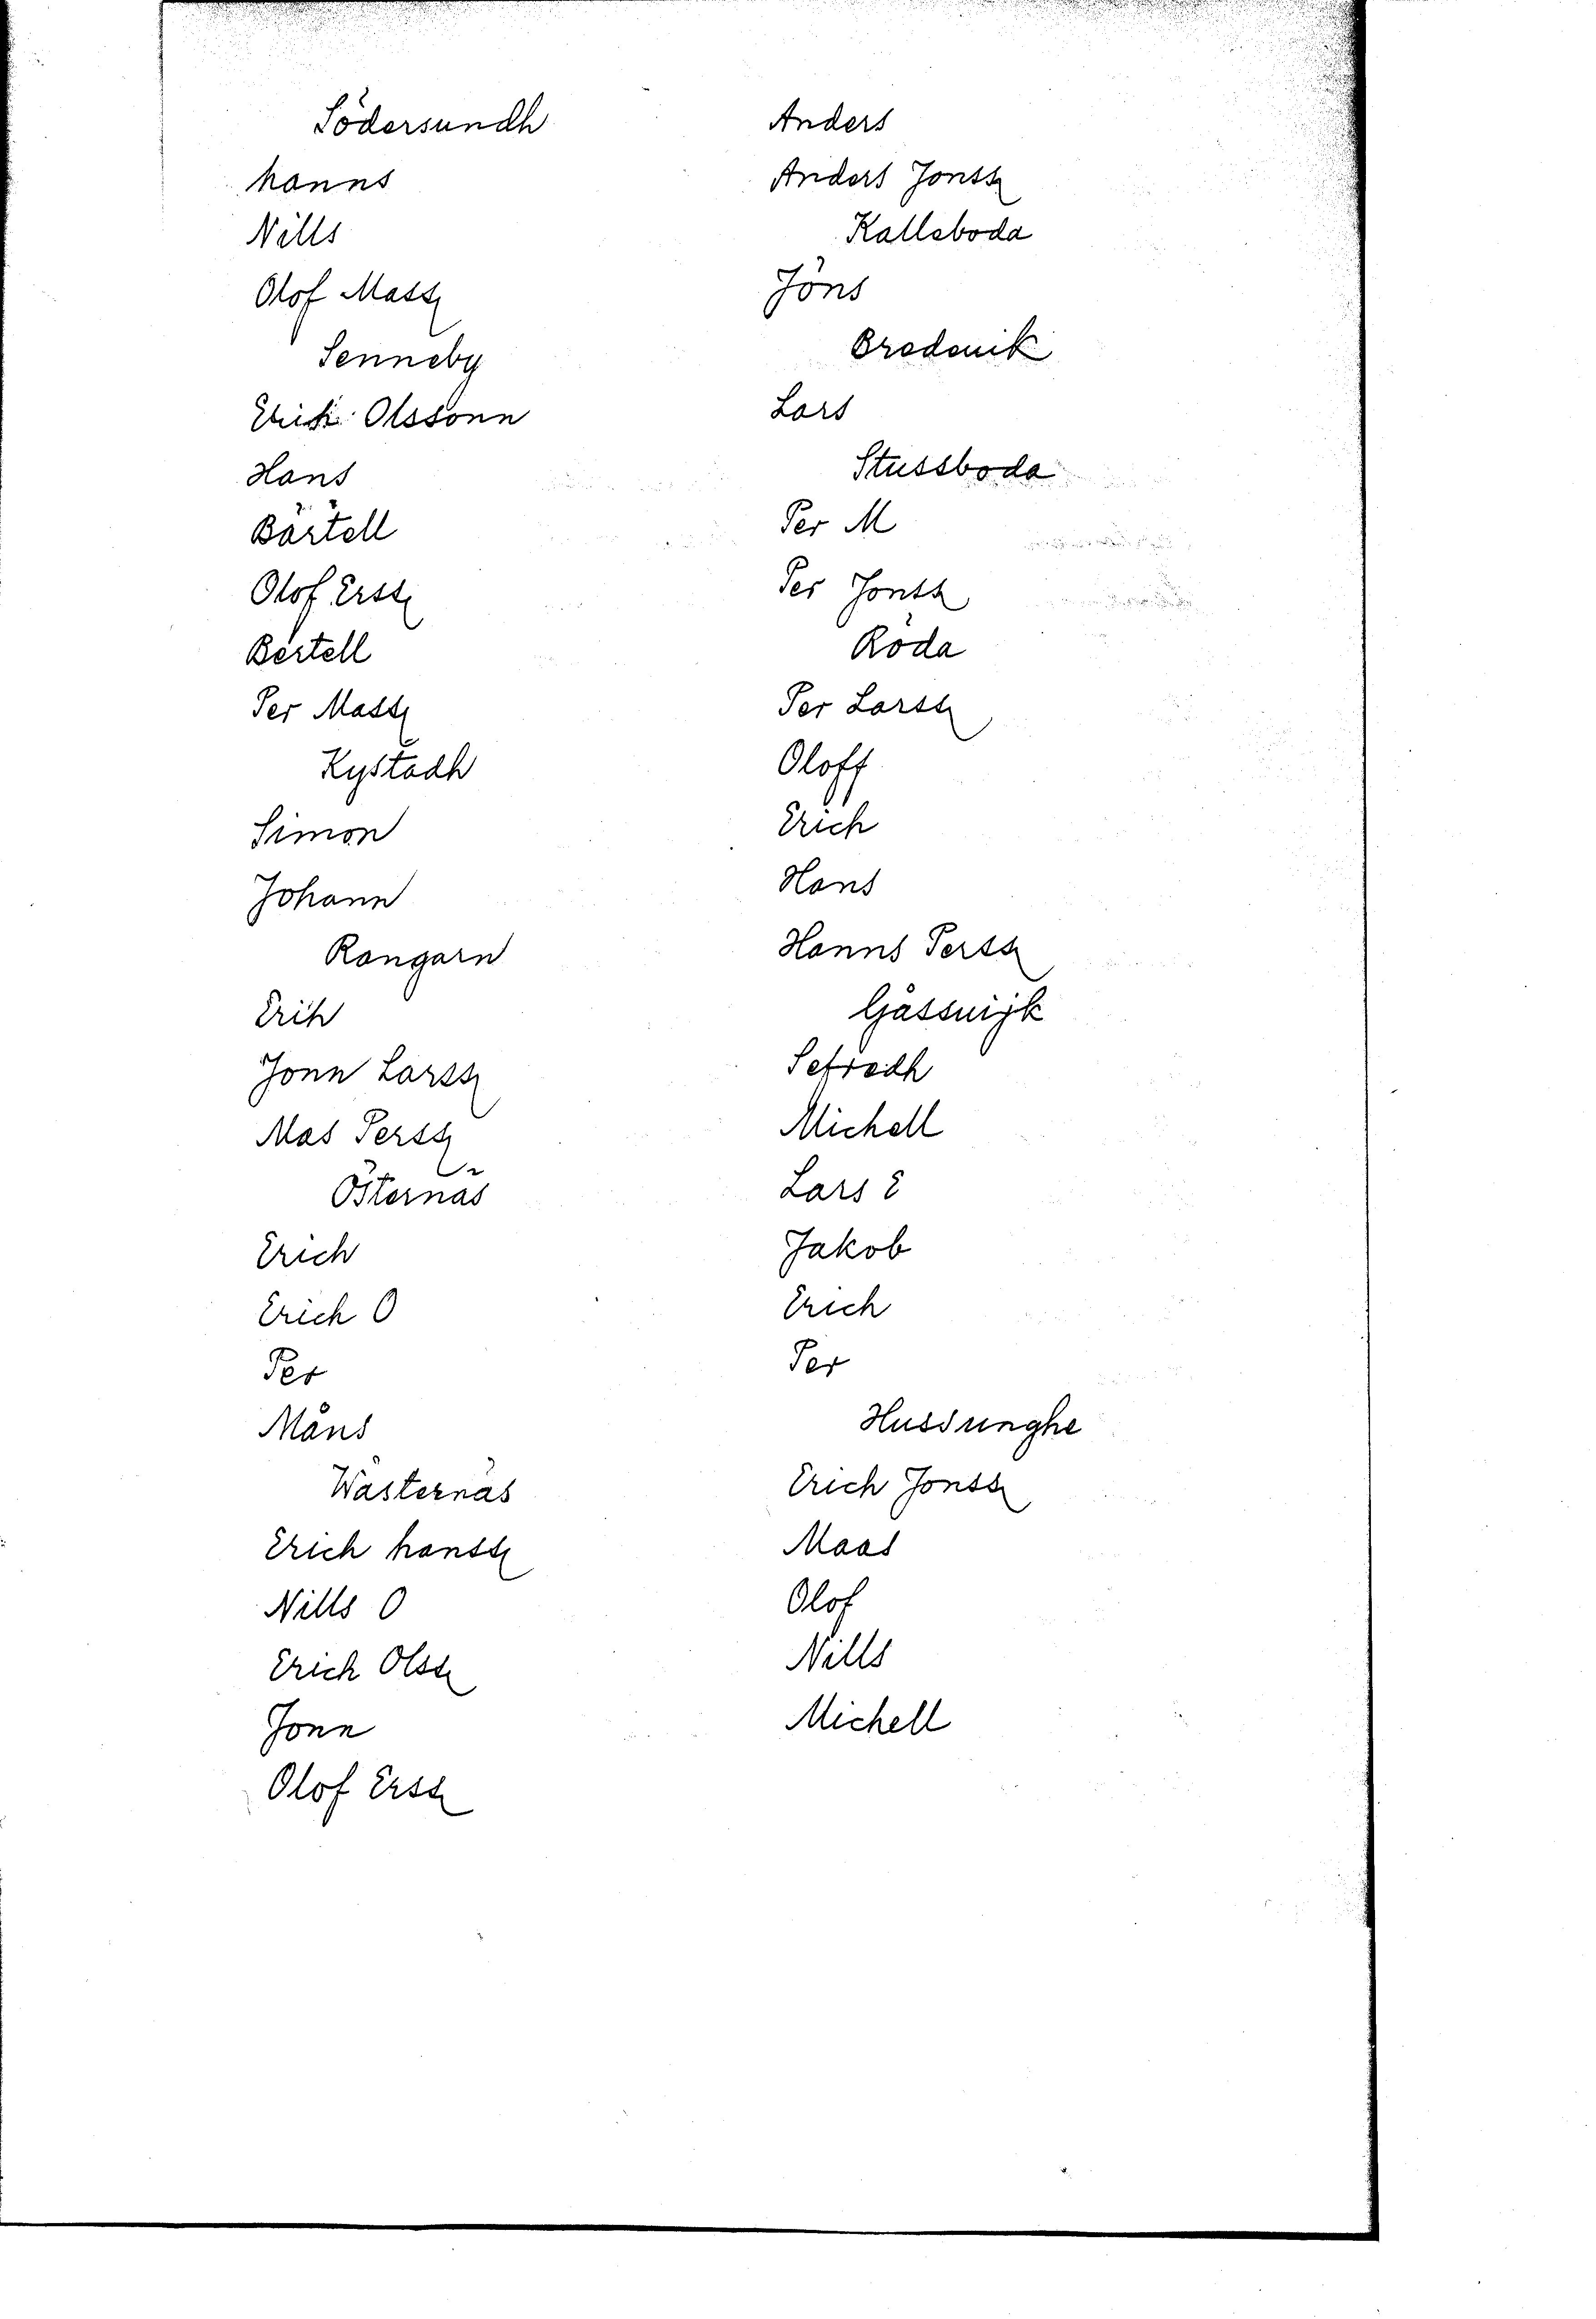 Södersundh
hanns
Nills
Olof Mass
Senneby
Erik Olssonn
Hans
Bärtell
Olof Erss
Bertell
Per Mass
Kystadh
Simon
Johann
Rangarn
Erik
Jonn Larss
Mas Perss
Östernäs
Erich
Erich O
Per
Måns
Wästernäs
Erich hanss
Nills O
Erich Olss
Jonn
Olof Erss
Anders
Anders Jonss
Kalleboda
Jöns
Bredeuik
Lars
Stussboda
Per M
Per Jonss
Röda
Per Larss
Oloff
Erich
Hans
Hanns Perss
Gåssuijk
Sefredh
Michell
Lars E
Jakob
Erich
Per
Hussunghe
Erich Jonss
Maas
Olof
Nills
Michell